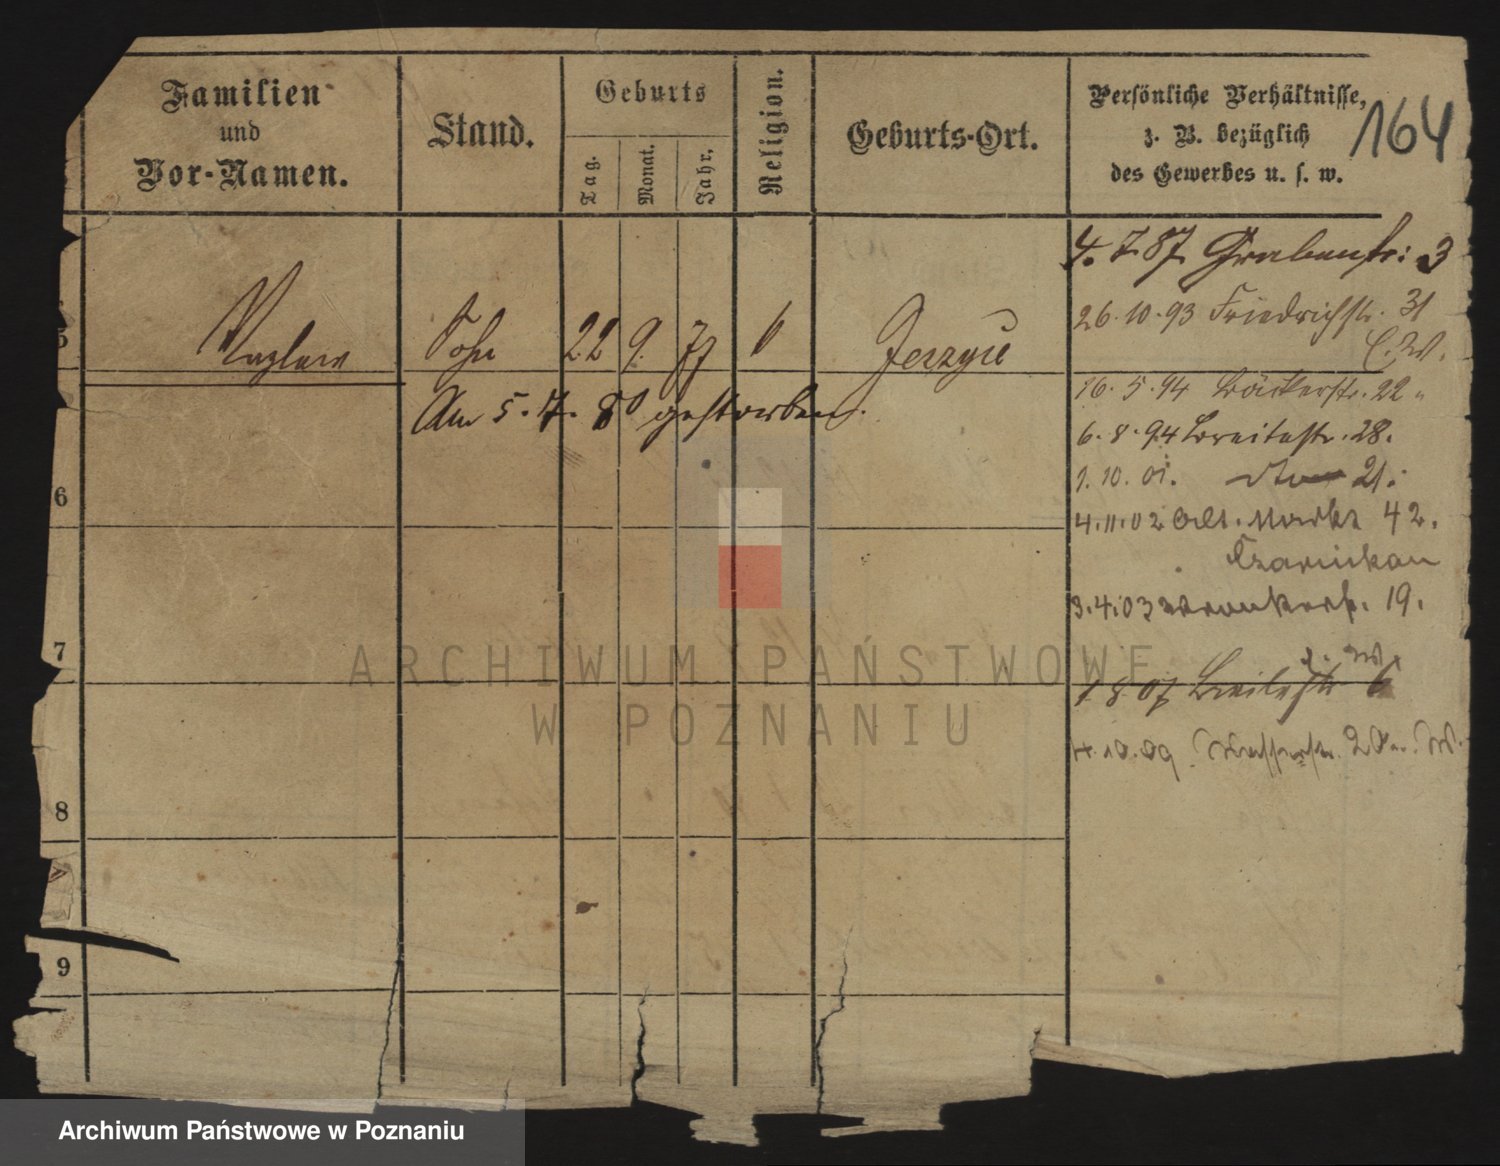 Familien
und
Vor-Namen.
Stand.
Geburts
Tag.
Monat.
Jahr.
Religion.
Geburts-Ort.
Persönliche Verhältnisse,
z. B. bezüglich
des Gewerbes u. s. w.
164
4. 7. 87 Grabenstr: 3
26. 10. 93 Friedrichstr. 31
5 Sohn 22 9. 77 Jerzyce
Am 5. 7. 80 gestorben.
16. 5. 94 Bäckerstr. 22
6. 8. 94 Breitestr. 28.
1. 10. 01. dto 21.
4. 11. 02 Alt. Markt 42.
Czarnikau
3. 4. 03 Wronkerstr. 19.
1 8 07 Breitestr 6
4. 10. 09. Wasserstr. 2
6
7
8
9
ARCHIWUM PAŃSTWOWE
W POZNANIU
Archiwum Państwowe w Poznaniu